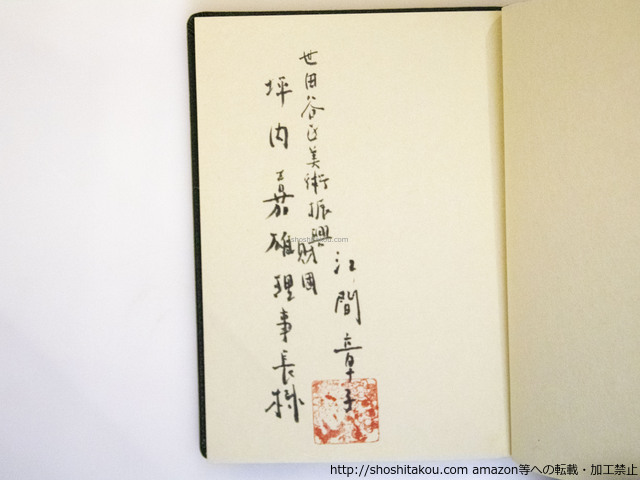 世田谷区美術振興財団
坪内嘉雄理事長様
江間章子
shoshitakou.com
http://shoshitakou.com amazon等への転載・加工禁止